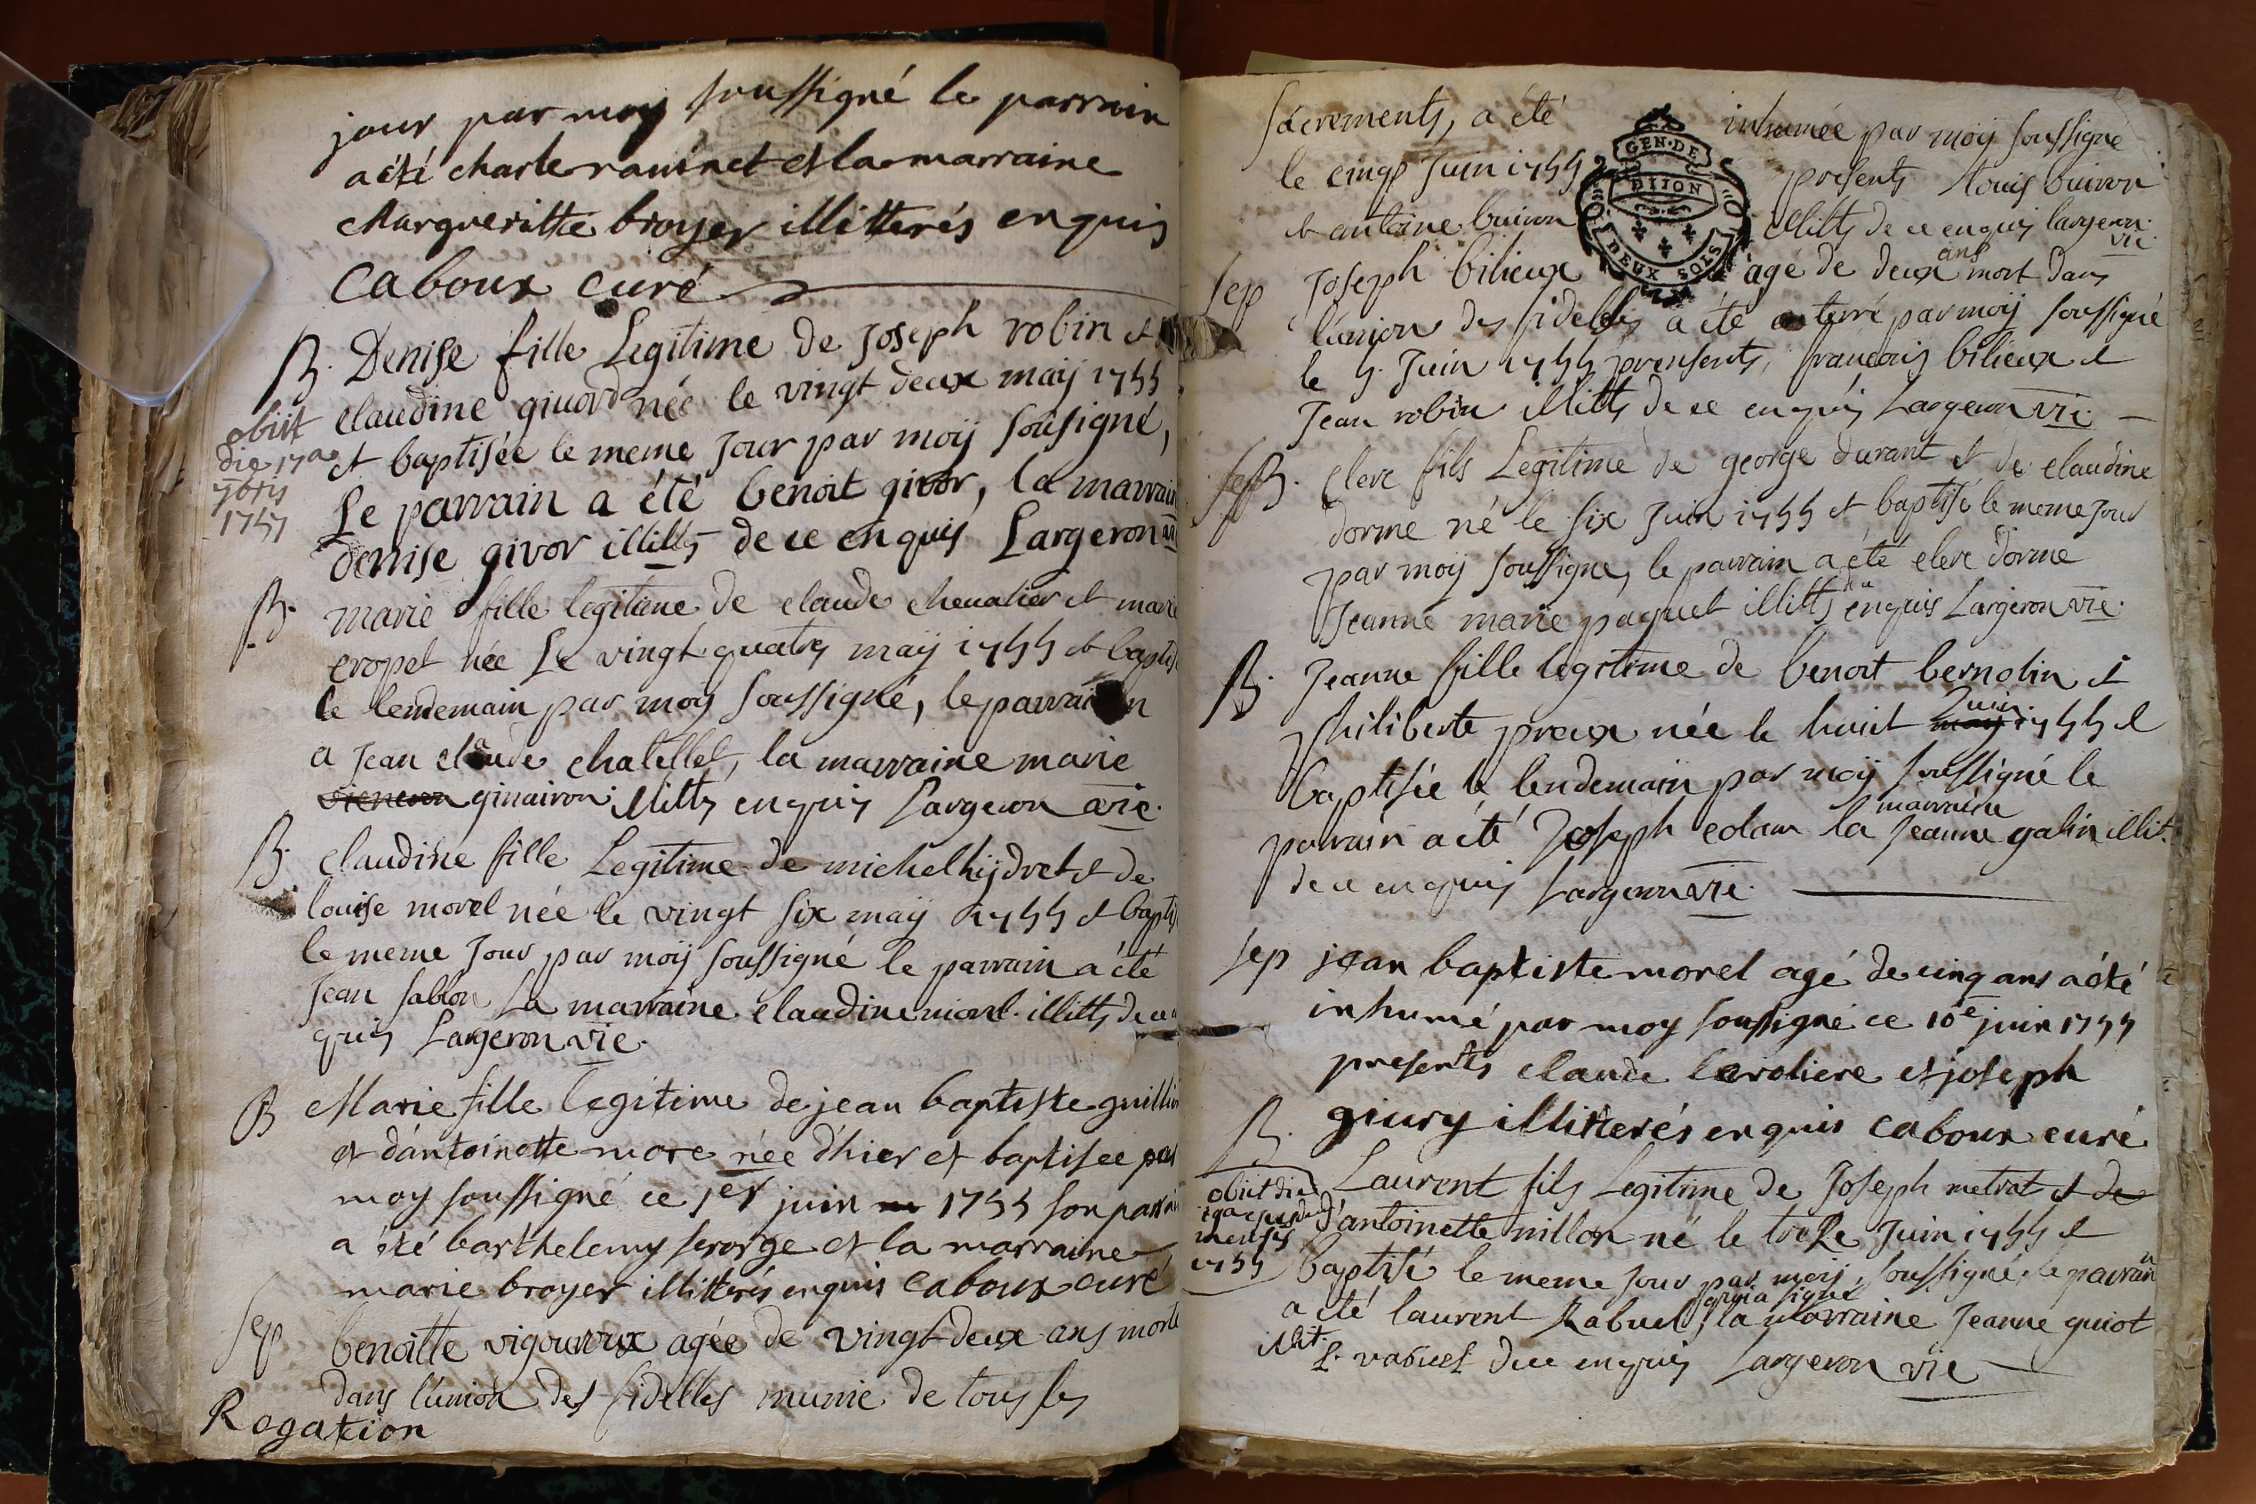 jour par moy soussigné le parrain
a été charle raminet et la marraine
Margueritte broyer illitterés enquis
caboux curé
B. Denise fille Legitime de Joseph robin et
claudine givord née le vingt deux maÿ 1755
obiit
die 17a
7bris
1757
et baptisée le meme Jour par moÿ sousigné,
Le parrain a été benoit givor, la marrain
denise givor illitts de ce enquis Largeron
B. marie fille legitime de claude chevalier et marie
cropet née Le vingt quatre maÿ 1755 et baptis
le lendemain par moy soussigné, le parrain
a Jean claude chatellet, la marraine marie
ginairon illitts enquis Largeron vic.
B. claudine fille Legitime de michel hijdret et de
louise morel née le vingt six maÿ 1755 et bapti
le meme Jour par moÿ soussigné le parrain a été
Jean sablon La marraine claudine morel illitts de ce
quis Largeron vic.
B Marie fille legitime de jean baptiste guillin
et d'antoinette more née d'hier et baptisée par
moy soussigné ce 1er juin 1755 son parrai
a été barthelemy george et la marraine
marie broyer illitterés enquis caboux curé
Sep benoitte vigouroux agée de vingt-deux ans morte
dans l'union des fidelles munie de tous ses
Rogation
sacrements, a été inhumée par moÿ soussigné
le cinq Juin 1755 presents Louis buiron
et antoine buiron illitts de ce enquis largeron vic.
GEN. DE
DIJON
DEUX SOLS
Sep Joseph bilieux agé de deux ans mort dans
l'union des fidelles a été enterré par moÿ soussigné
le 5. Juin 1755 presents, francois bilieux et
Jean robin illitts de ce enquis Largeron vic.
B. clere fils Legitime de george durant et de claudine
dorme né le six Juin 1755 et baptisé le meme Jour
par moÿ soussigné, le parrain a été clere dorme
Jeanne marie paquet illitts enquis Largeron vic.
B. Jeanne fille legitime de benoit bernolin et
philiberte preux née le huit Juin 1755 et
baptisée le lendemain par moÿ soussigné le
parrain a été Joseph edam la marraine Jeanne galin illit.
de ce enquis Largeron vic.
Sep jean baptiste morel agé de cinq ans a été
inhumé par moy soussigné ce 10e juin 1755
presents claude laroliere et joseph
giury illitterés enquis caboux curé
B. Laurent fils Legitime de Joseph metrat et de
obiit die
mensis
1755
d'antoinette millon né le treize Juin 1755 et
baptisé le meme Jour par moÿ soussigné, le parrain
a été laurent Rabuel qui a signé la marraine Jeanne guiot
illit. L. rabuel de ce enquis Largeron vic